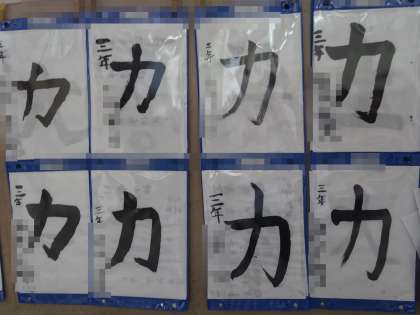 三年
力
三年
力
三年
力
三年
力
三年
力
三年
力
三年
力
三年
力